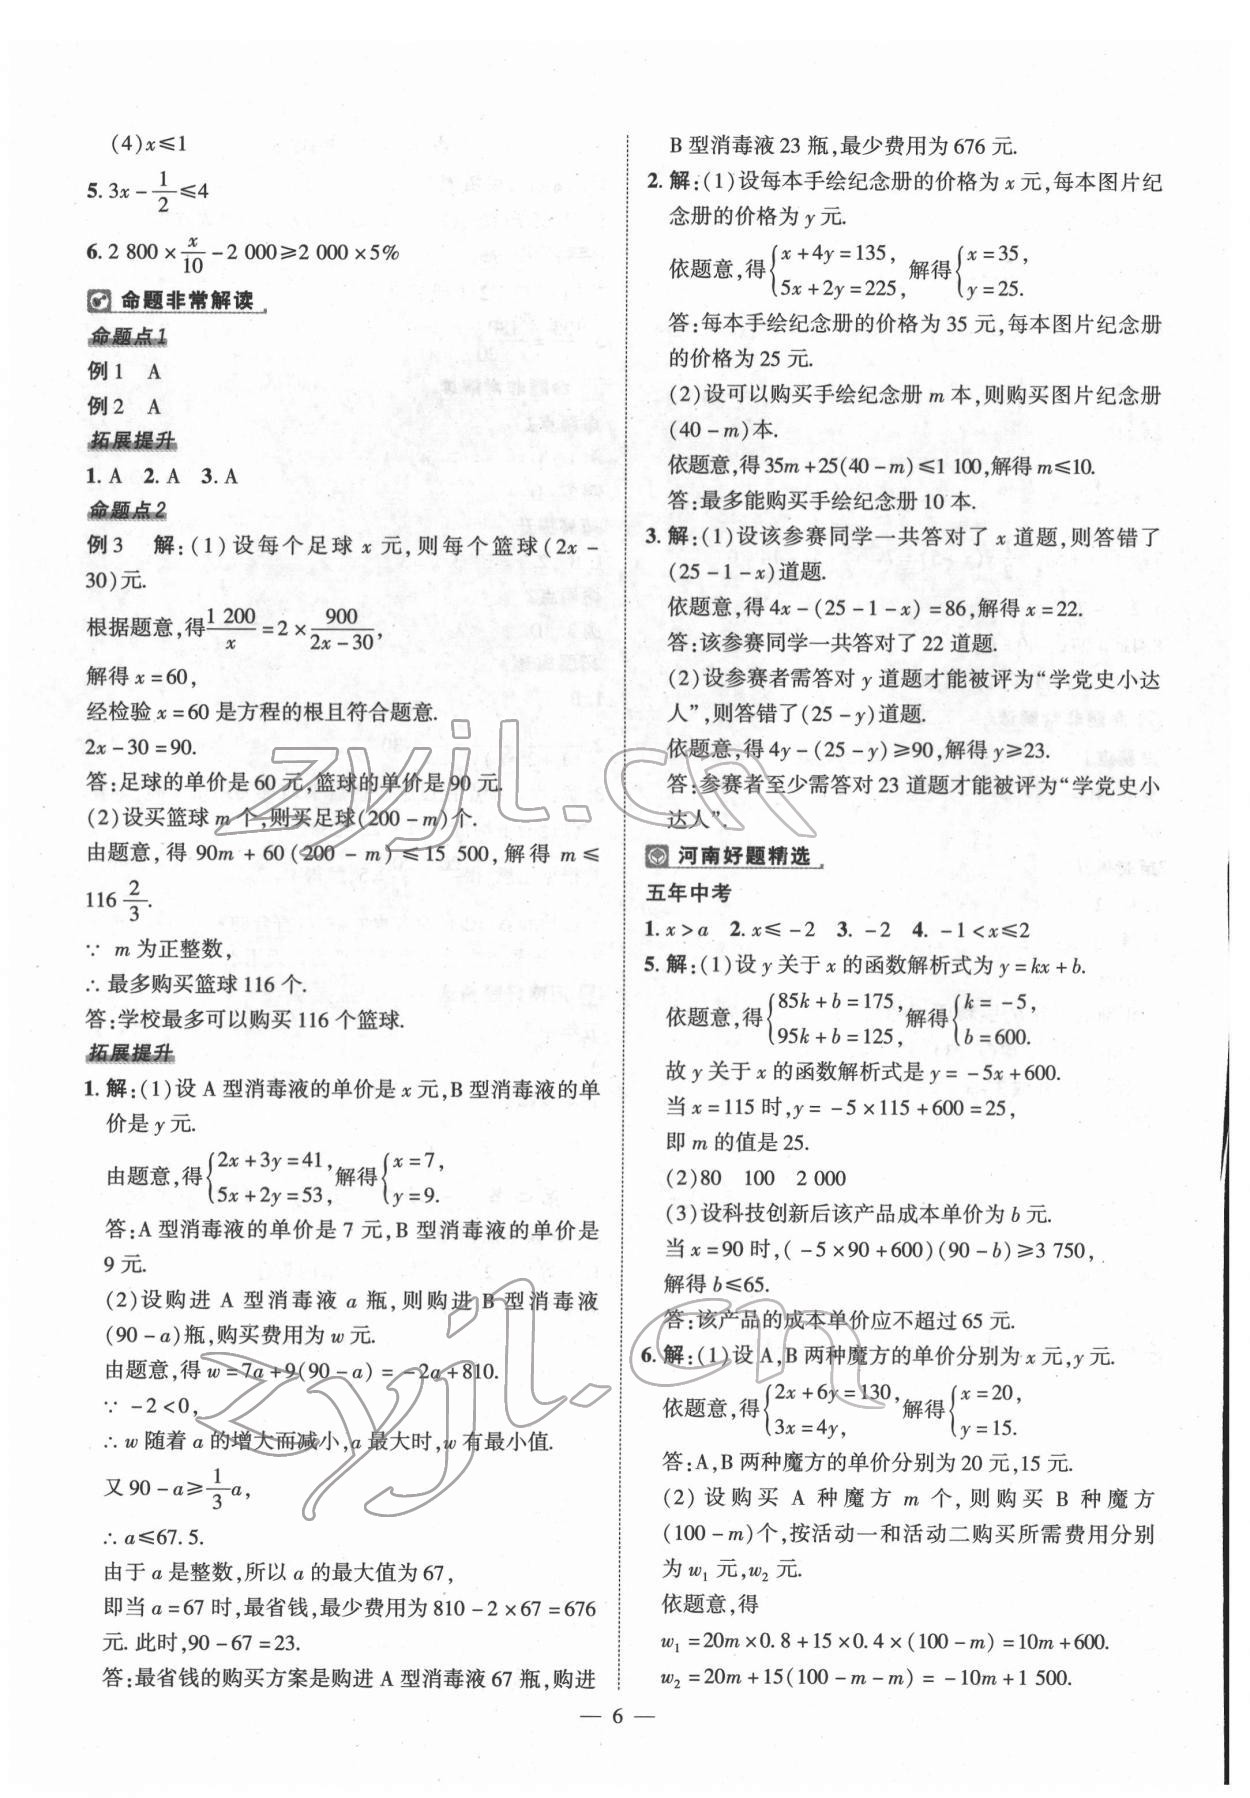 (4)x≤1
5. 3x-1/2≤4
6. 2 800×x/10-2 000≥2 000×5%
命题非常解读
命题点1
例1 A
例2 A
拓展提升
1. A 2. A 3. A
命题点2
例3 解:(1)设每个足球 x 元,则每个篮球(2x-
30)元.
根据题意,得1 200/x=2×900/(2x-30),
解得 x=60,
经检验 x=60 是方程的根且符合题意.
2x-30=90.
答:足球的单价是 60 元,篮球的单价是 90 元.
(2)设买篮球 m 个,则买足球(200-m)个.
由题意,得 90m+60(200-m)≤15 500,解得 m≤
116 2/3.
∵ m 为正整数,
∴ 最多购买篮球 116 个.
答:学校最多可以购买 116 个篮球.
拓展提升
1. 解:(1)设 A 型消毒液的单价是 x 元,B 型消毒液的单
价是 y 元.
由题意,得{2x+3y=41, 5x+2y=53,解得{x=7, y=9.
答:A 型消毒液的单价是 7 元,B 型消毒液的单价是
9 元.
(2)设购进 A 型消毒液 a 瓶,则购进 B 型消毒液
(90-a)瓶,购买费用为 w 元.
由题意,得 w=7a+9(90-a)=-2a+810.
∵ -2<0,
∴ w 随着 a 的增大而减小,a 最大时,w 有最小值.
又 90-a≥1/3a,
∴ a≤67.5.
由于 a 是整数,所以 a 的最大值为 67,
即当 a=67 时,最省钱,最少费用为 810-2×67=676
元. 此时,90-67=23.
答:最省钱的购买方案是购进 A 型消毒液 67 瓶,购进
B 型消毒液 23 瓶,最少费用为 676 元.
2. 解:(1)设每本手绘纪念册的价格为 x 元,每本图片纪
念册的价格为 y 元.
依题意,得{x+4y=135, 5x+2y=225,解得{x=35, y=25.
答:每本手绘纪念册的价格为 35 元,每本图片纪念册
的价格为 25 元.
(2)设可以购买手绘纪念册 m 本,则购买图片纪念册
(40-m)本.
依题意,得 35m+25(40-m)≤1 100,解得 m≤10.
答:最多能购买手绘纪念册 10 本.
3. 解:(1)设该参赛同学一共答对了 x 道题,则答错了
(25-1-x)道题.
依题意,得 4x-(25-1-x)=86,解得 x=22.
答:该参赛同学一共答对了 22 道题.
(2)设参赛者需答对 y 道题才能被评为“学党史小达
人”,则答错了(25-y)道题.
依题意,得 4y-(25-y)≥90,解得 y≥23.
答:参赛者至少需答对 23 道题才能被评为“学党史小
达人”.
河南好题精选
五年中考
1. x>a 2. x≤-2 3. -2 4. -1<x≤2
5. 解:(1)设 y 关于 x 的函数解析式为 y=kx+b.
依题意,得{85k+b=175, 95k+b=125,解得{k=-5, b=600.
故 y 关于 x 的函数解析式是 y=-5x+600.
当 x=115 时,y=-5×115+600=25,
即 m 的值是 25.
(2)80 100 2 000
(3)设科技创新后该产品成本单价为 b 元.
当 x=90 时,(-5×90+600)(90-b)≥3 750,
解得 b≤65.
答:该产品的成本单价应不超过 65 元.
6. 解:(1)设 A,B 两种魔方的单价分别为 x 元,y 元.
依题意,得{2x+6y=130, 3x=4y,解得{x=20, y=15.
答:A,B 两种魔方的单价分别为 20 元,15 元.
(2)设购买 A 种魔方 m 个,则购买 B 种魔方
(100-m)个,按活动一和活动二购买所需费用分别
为 w₁ 元,w₂ 元.
依题意,得
w₁=20m×0.8+15×0.4×(100-m)=10m+600.
w₂=20m+15(100-m-m)=-10m+1 500.
— 6 —
zyjl.cn
zyjl.cn